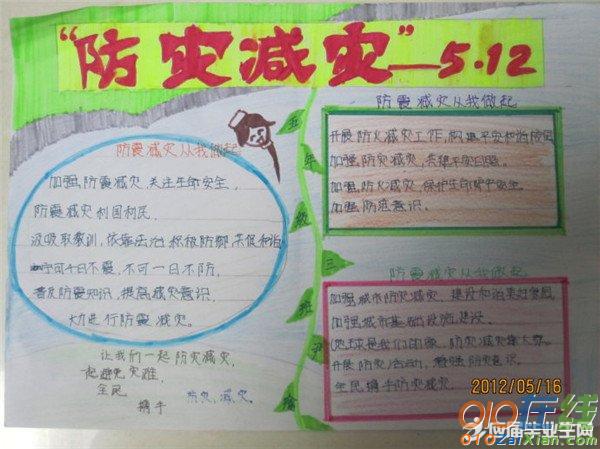 “防灾减灾”—5.12
防震减灾从我做起
加强防震减灾,关注生命安全,
防震减灾利国利民,
汲吸取教训,依靠法治积极防御
宁可千日不震,不可一日不防,
普及防震知识,提高减灾意识,
大力进行防震减灾。
让我们一起防灾减灾,
起避免灾难,
全民
携手
防灾,减灾
五年级三班
防震减灾从我做起
开展防火减灾工作,构建平安和谐
加强防灾减灾,共建平安
加强防火减灾,保护生命安全
加强防范意识。
防震减灾从我做起
加强城市防灾减灾,建设和谐美好家园
加强城市基础设施建设,
地球是我们的家,防灾减灾靠大家,
开展防灾活动,增强防灾意识,
全民携手防灾减灾。
2012/05/16
010在线
010zaixian.com
应届毕业生网